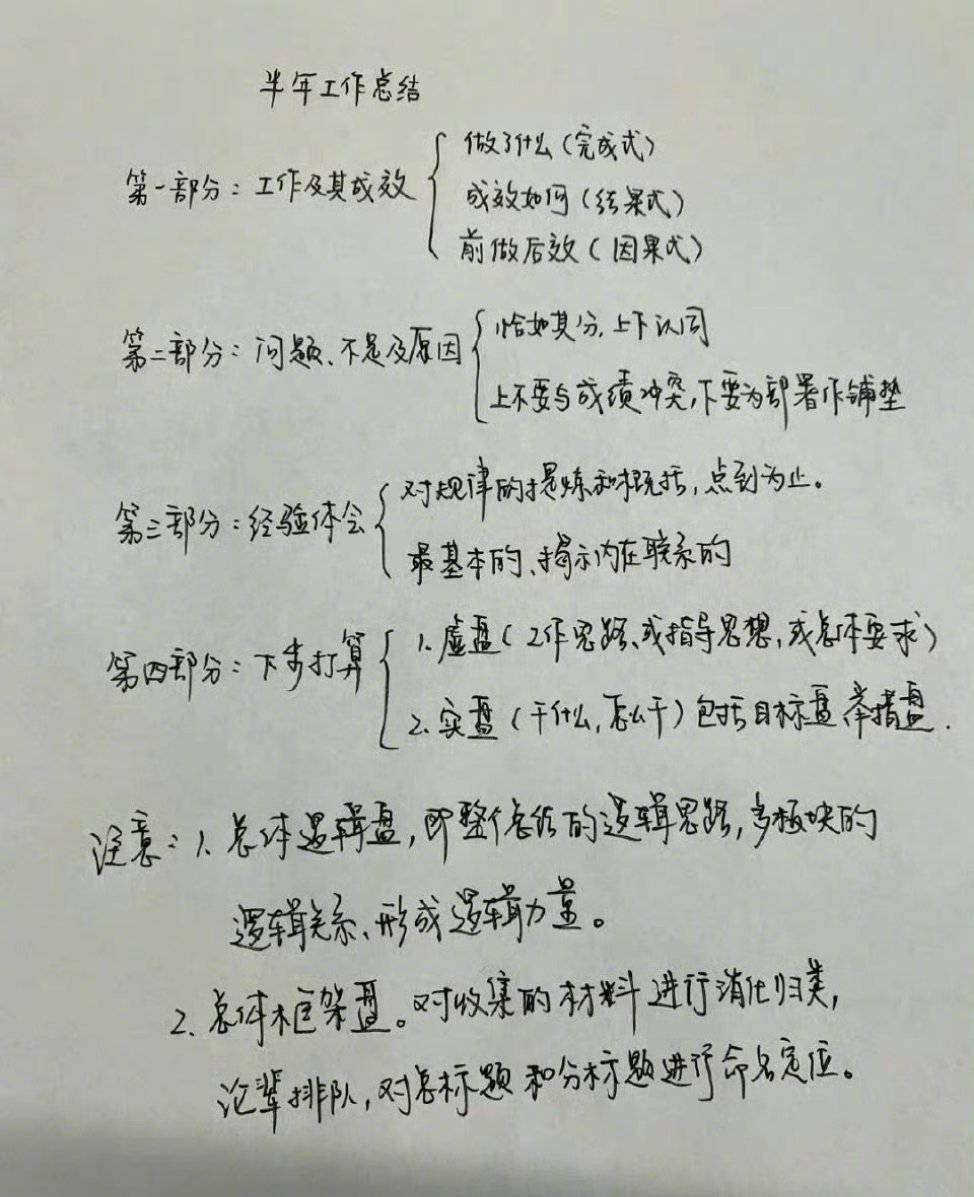 半年工作总结
做了什么(完成式)
第一部分:工作及其成效
成效如何(结果式)
前做后效(因果式)
恰如其分,上下认同
第二部分:问题、不足及原因
上不要与成绩冲突,下要为部署作铺垫
对规律的提炼和概括,点到为止。
第三部分:经验体会
最基本的、揭示内在联系的
1.虚盘(工作思路、或指导思想,或总体要求)
第四部分:下步打算
2.实盘(干什么,怎么干)包括目标盘 举措盘.
注意:1、总体逻辑盘,即整个总结的逻辑思路,多板块的
逻辑关系、形成逻辑力量。
2.总体框架盘。对收集的材料进行消化归类,
论辈排队,对总标题和分标题进行命名定位。